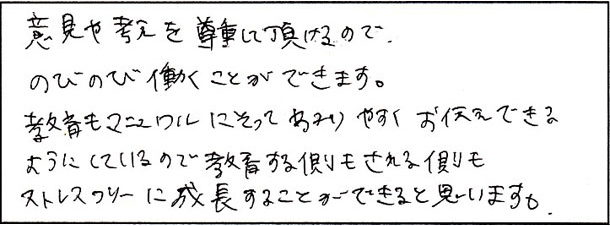 意見や考えを尊重して頂けるので、
のびのび働くことができます。
教育もマニュアルにそってわかりやすくお伝えできる
ようにしているので教育する側もされる側も
ストレスフリーに成長することができると思います。